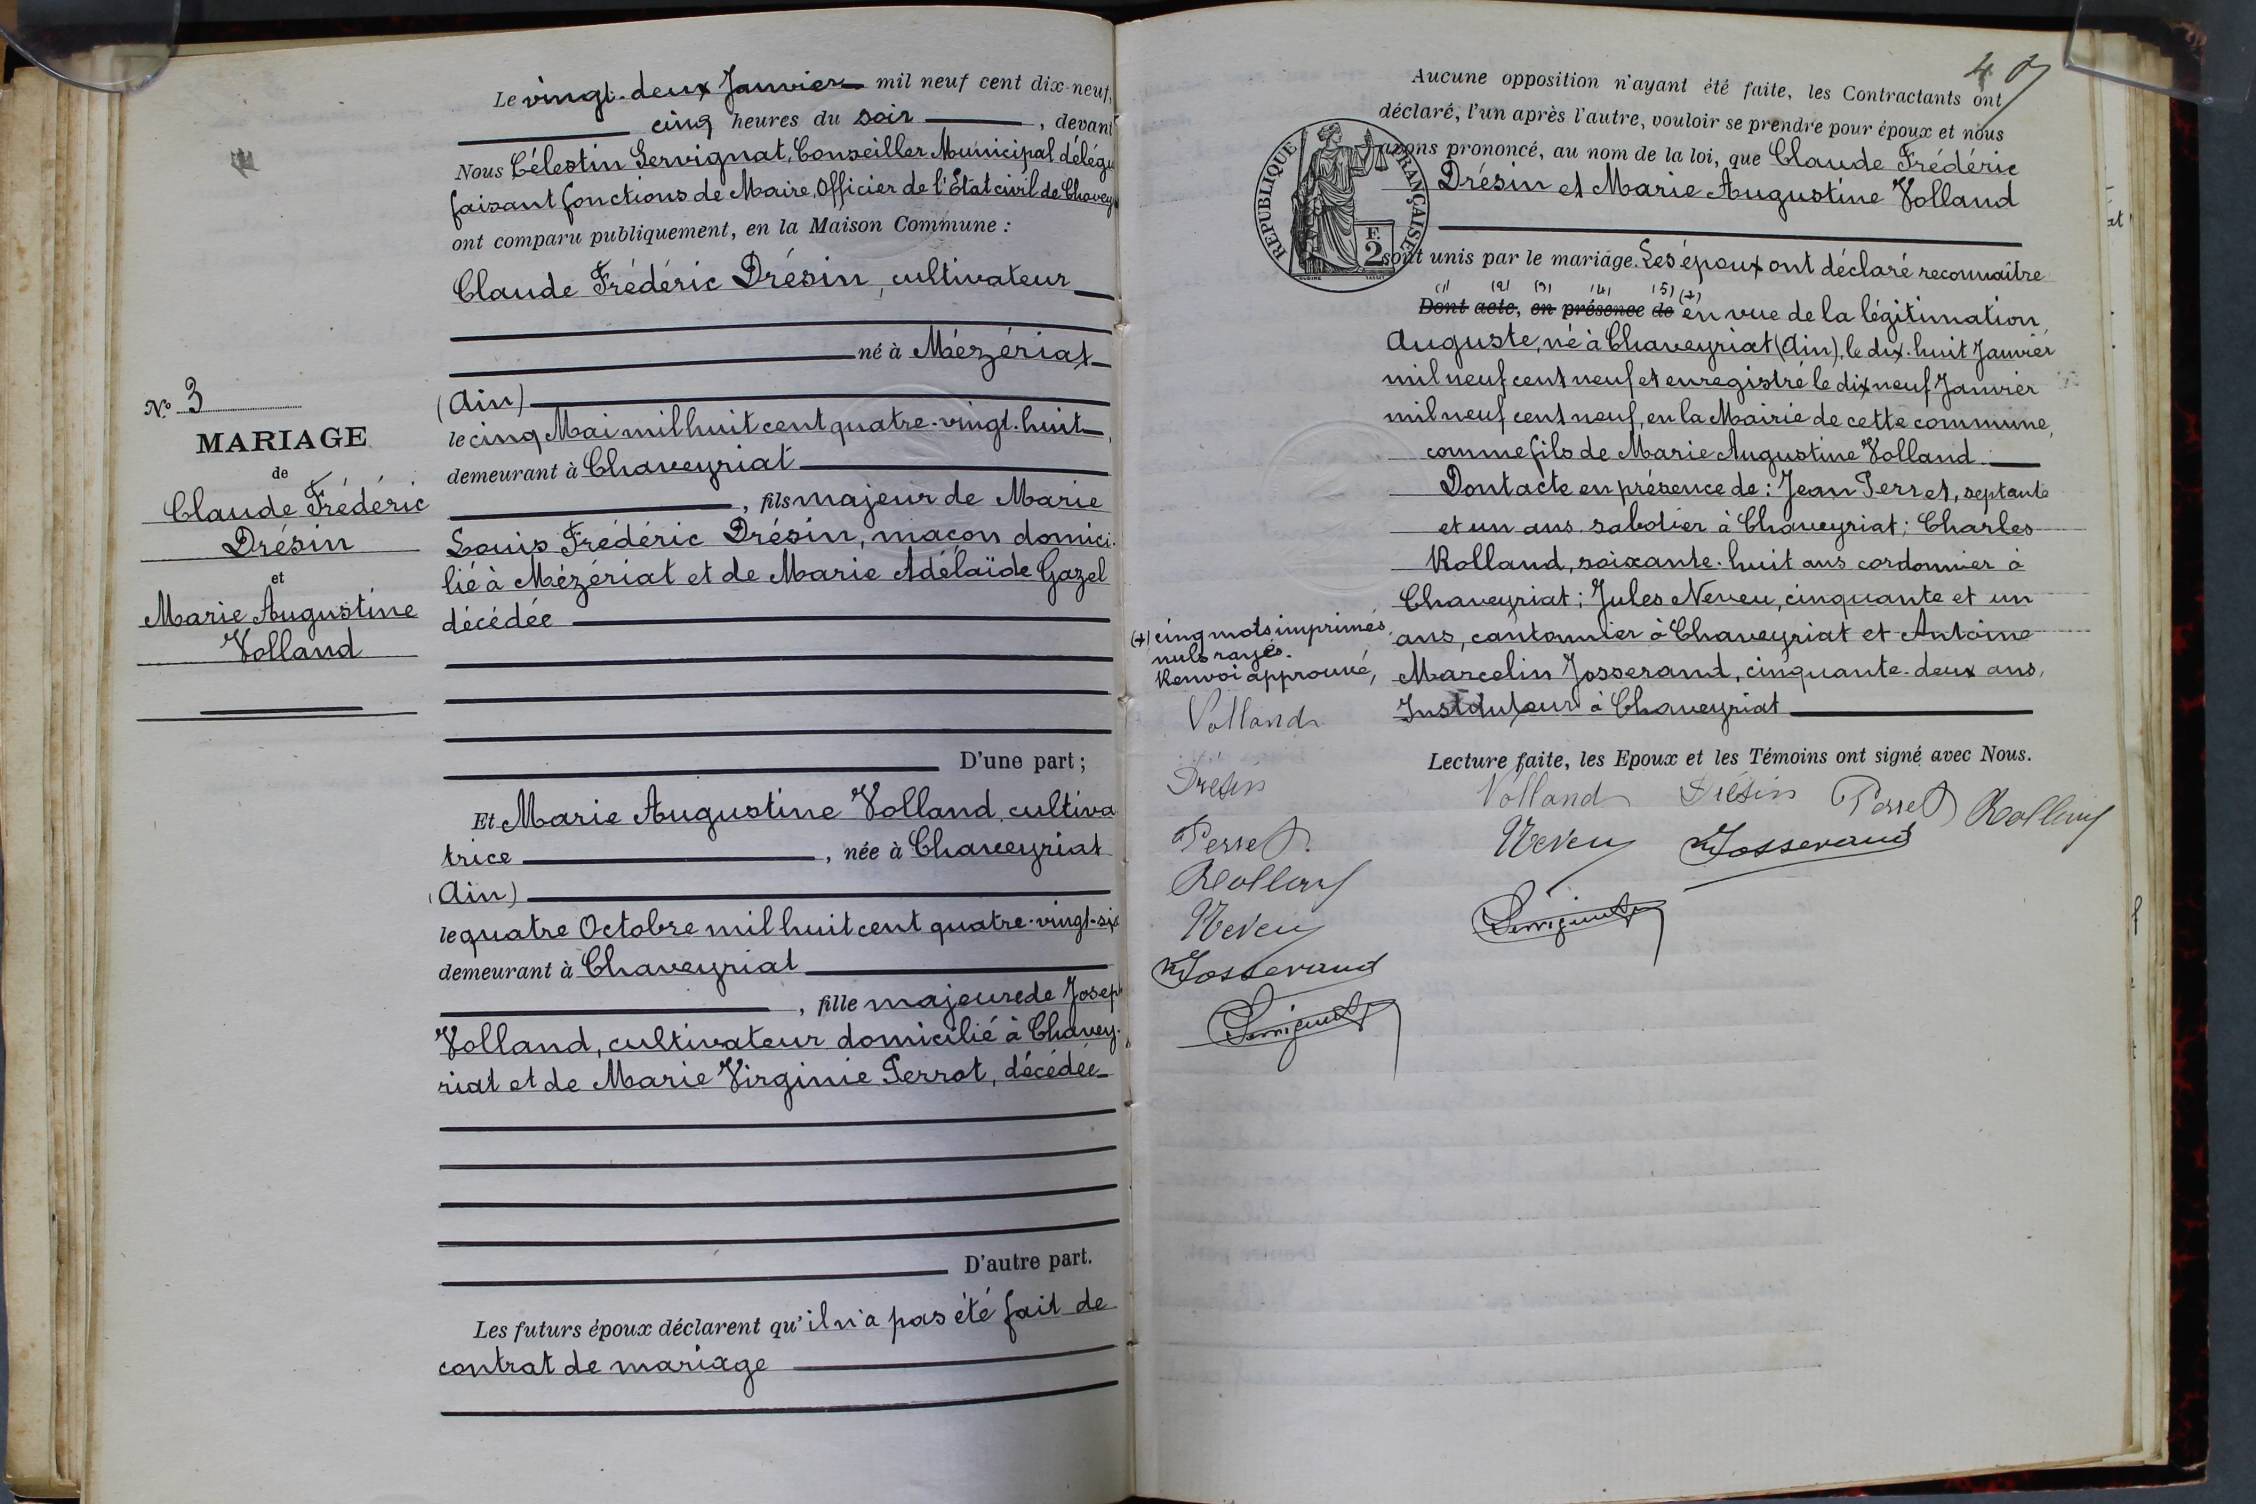 Le vingt-deux Janvier mil neuf cent dix-neuf,
cinq heures du soir, devant
Nous Célestin Servignat, Conseiller Municipal délégu
faisant fonctions de Maire, Officier de l'État civil de Chavey
ont comparu publiquement, en la Maison Commune :
Claude Frédéric Drésin, cultivateur
né à Mézériat
(Ain)
le cinq Mai mil huit cent quatre-vingt-huit,
demeurant à Chaveyriat
, fils majeur de Marie
Louis Frédéric Drésin, maçon domici-
lié à Mézériat et de Marie Adélaïde Gazel
décédée
D'une part ;
Et Marie Augustine Volland, cultiva
trice, née à Chaveyriat
(Ain)
le quatre Octobre mil huit cent quatre-vingt-six
demeurant à Chaveyriat
, fille majeure de Josep
Volland, cultivateur domicilié à Chavey-
riat et de Marie Virginie Perrot, décédée
D'autre part.
Les futurs époux déclarent qu'il n'a pas été fait de
contrat de mariage
N° 3
MARIAGE
de
Claude Frédéric
Drésin
et
Marie Augustine
Volland
Aucune opposition n'ayant été faite, les Contractants ont
déclaré, l'un après l'autre, vouloir se prendre pour époux et nous
avons prononcé, au nom de la loi, que Claude Frédéric
Drésin et Marie Augustine Volland
sont unis par le mariage. Les époux ont déclaré reconnaître
(1) (2) (3) (4) (5) (+)
Dont acte, en présence de en vue de la légitimation
Auguste, né à Chaveyriat (Ain), le dix-huit Janvier
mil neuf cent neuf et enregistré le dix neuf Janvier
mil neuf cent neuf, en la Mairie de cette commune,
comme fils de Marie Augustine Volland.
Dont acte en présence de : Jean Perret, septante
et un ans, sabotier à Chaveyriat ; Charles
Rolland, soixante-huit ans cordonnier à
Chaveyriat ; Jules Neveu, cinquante et un
ans, cantonnier à Chaveyriat et Antoine
Marcelin Josserand, cinquante-deux ans,
Instituteur à Chaveyriat
Lecture faite, les Epoux et les Témoins ont signé avec Nous.
Volland Drésin Perret Rolland
Neveu Josserand
Servignat
RÉPUBLIQUE FRANÇAISE
F.
2
(+) cinq mots imprimés
nuls rayés.
Renvoi approuvé,
Volland
Drésin
Perret
Rolland
Neveu
Josserand
Servignat